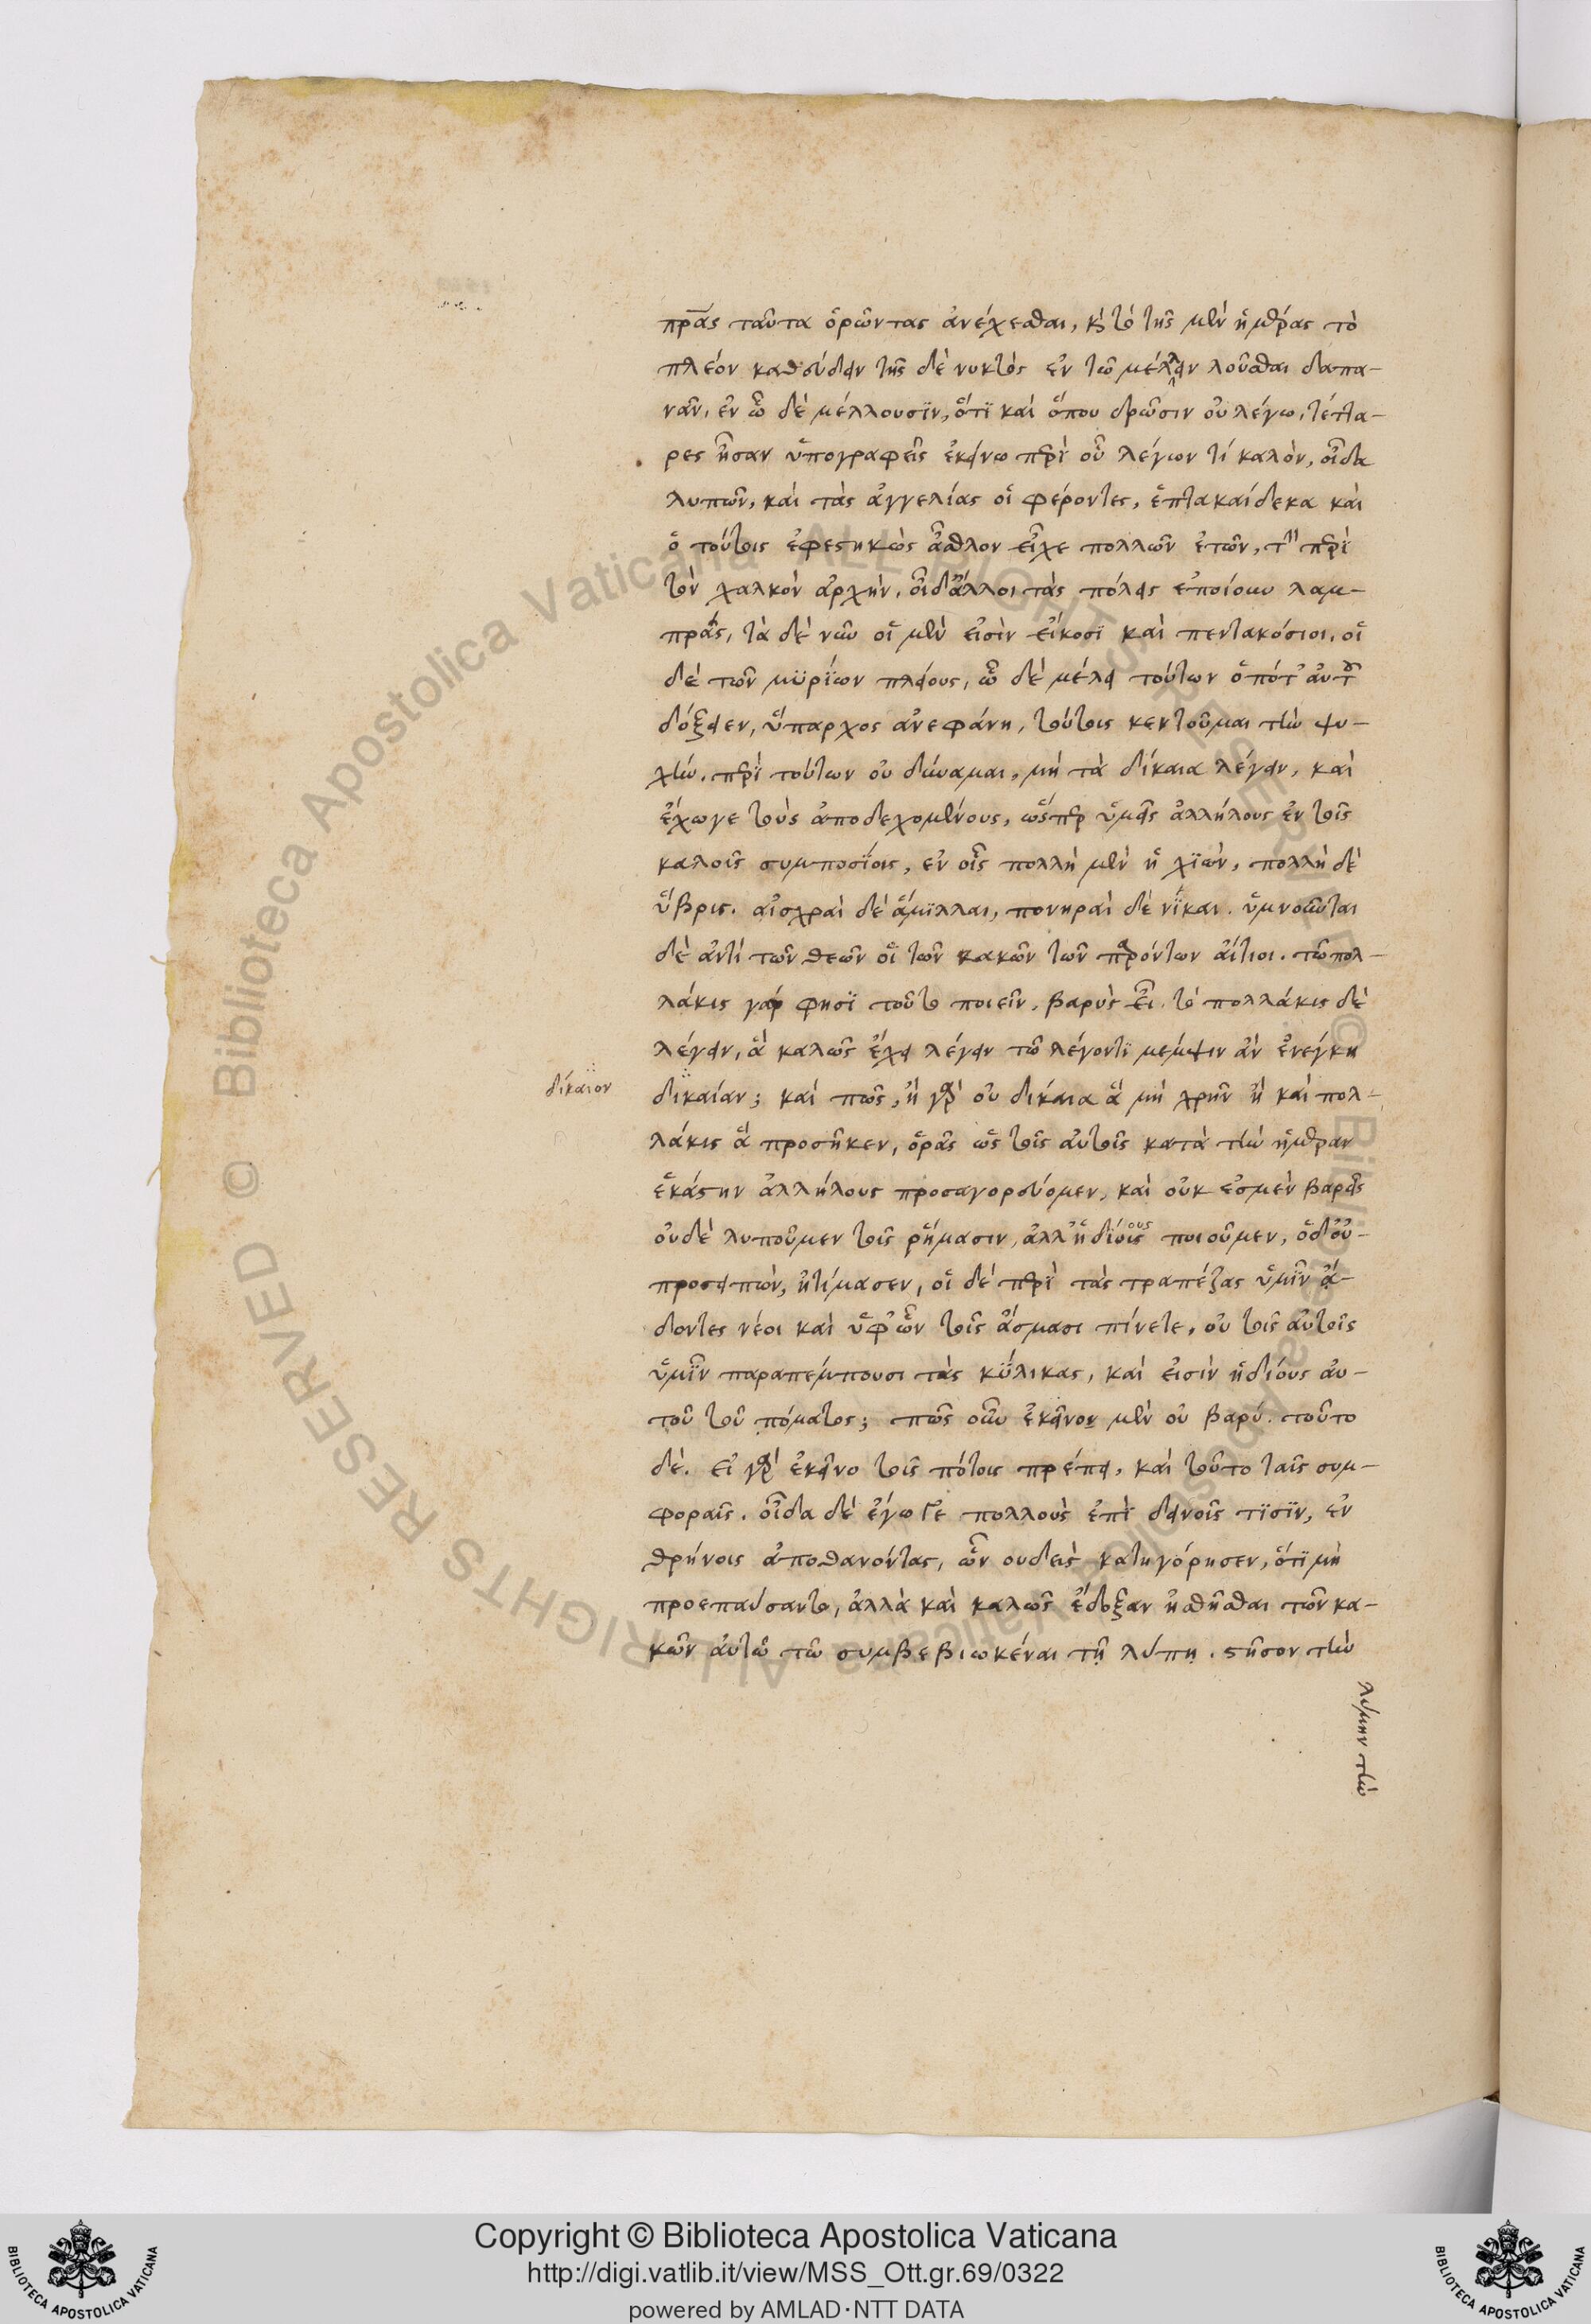 πρας ταῦτα ὁρῶντας ἀνέχεσθαι, καὶ τὸ τῆς μὲν ἡμέρας τὸ
πλέον καθεύδειν τῆς δὲ νυκτὸς ἐν τῷ μέλλειν λοῦσθαι δαπα-
νᾶν, ἐν ᾧ δὲ μέλλουσϊν, ὅτϊ καὶ ὅπου δρῶσιν οὐ λέγω, τέττα-
ρες ἦσαν ὑπογραφεῖς ἐκείνω περὶ οὗ λέγων τί καλὸν, οἶδα
λυπῶν, καὶ τὰς ἀγγελίας οἱ φέροντες, ἑπτακαίδεκα καὶ
ὁ τούτοις ἐφεστηκὼς ἆθλον εἶχε πολλῶν ἐτῶν, τὴν περὶ
τὸν χαλκὸν ἀρχὴν, οἱ δ' ἄλλοι τὰς πόλεις ἐποίουν λαμ-
πρὰς, τὰ δὲ νῦν οἱ μὲν εἰσὶν εἴκοσϊ καὶ πεντακόσιοι, οἱ
δὲ τῶν μϋρΐων πλείους, ᾧ δὲ μέλει τούτων ὁπότ' αὐτῶ
δόξειεν, ὕπαρχος ἀνεφάνη, τούτοις κεντοῦμαι τὴν ψυ-
χήν. περὶ τούτων οὐ δύναμαι, μὴ τὰ δίκαια λέγειν, καὶ
ἔχωγε τοὺς ἀποδεχομένους, ὥσπερ ὑμεῖς ἀλλήλους ἐν τοῖς
καλοῖς συμποσΐοις, ἐν οἷς πολλὴ μὲν ἡ χϊὼν, πολλὴ δὲ
ὕβρις. αἰσχραὶ δὲ ἅμϊλλαι, πονηραὶ δὲ νῖκαι. ὑμνοῦνται
δὲ ἀντὶ τῶν θεῶν οἱ τῶν κακῶν τῶν παρόντων αἴτιοι. τῶ πολ-
λάκις γάρ φησϊ τοῦτο ποιεῖν, βαρὺς εἶ. τὸ πολλάκις δὲ
λέγειν, ἃ καλῶς ἔχει λέγειν τῶ λέγοντϊ μέμψιν ἂν ἐνέγκη
δίκαϊον
δϊκαίαν; καὶ πῶς, ἢ γὰρ οὐ δίκαια ἃ μὴ χρῆν ἢ καὶ πολ-
λάκις ἃ προσῆκεν, ὁρᾶς ὡς τοῖς αὐτοῖς κατὰ τὴν ἡμέραν
ἑκάστην ἀλλήλους προσαγορεύομεν, καὶ οὐκ ἐσμὲν βαρεῖς
οὐδὲ λυποῦμεν τοῖς ῥήμασιν, ἀλλ' ἡδίους ποιοῦμεν, ὁ δ' οὐ-
προσειπὼν, ἠτίμασεν, οἱ δὲ περὶ τὰς τραπέζας ὑμῖν ᾄ-
δοντες νέοι καὶ ὑφ' ὧν τοῖς ᾄσμασι πίνετε, οὐ τοῖς αὐτοῖς
ὑμῖν παραπέμπουσι τὰς κύλικας, καὶ εἰσὶν ἡδίους αὐ-
τοῦ τοῦ πόματος; πῶς οὖν ἐκεῖνον μὲν οὐ βαρύ. τοῦτο
δὲ. εἰ γὰρ ἐκεῖνο τοῖς πότοις πρέπει, καὶ τοῦτο ταῖς συμ-
φοραῖς. οἶδα δὲ ἔγωγε πολλοὺς ἐπὶ δεινοῖς τϊσϊν, ἐν
θρήνοις ἀποθανόντας, ὧν οὐδεὶς κατηγόρησεν, ὅτϊ μὴ
προεπαύσαντο, ἀλλὰ καὶ καλῶς ἔδοξαν ᾐσθῆσθαι τῶν κα-
κῶν αὐτῶ τῶ συμβεβιωκέναι τῇ λύπῃ. στῆσον τὴν
λύμην τὴν